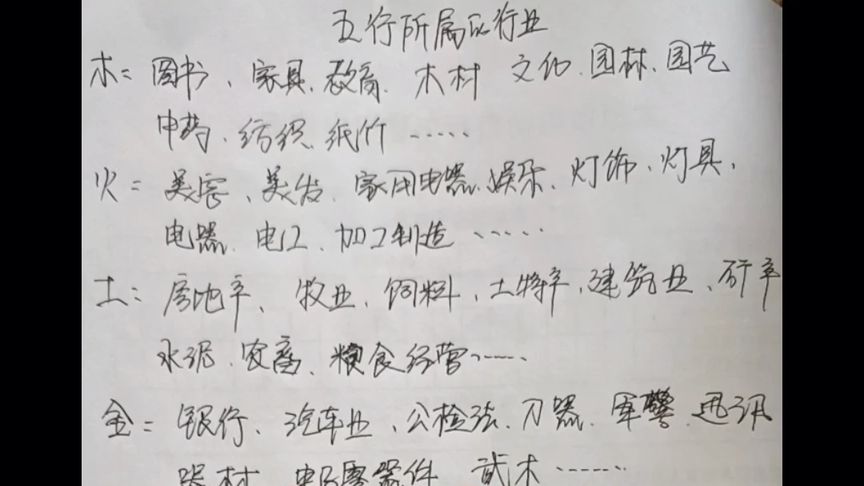 五行所属的行业
木: 图书、家具、教育、木材 文化、园林、园艺
中药、纺织、纸竹……
火: 美容、美发、家用电器、娱乐、灯饰、灯具,
电器、电工、加工制造……
土: 房地产、牧业、饲料、土特产、建筑业、矿产
水泥、农畜、粮食经营……
金: 银行、汽车业、公检法、刀器、军警、通讯
器材、零器件、武术……